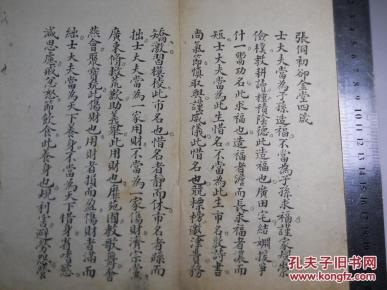 張侗初卻金堂四箴
士大夫當為子孫造福不當為子孫求福謹家規崇
儉樸教耕讀積陰德此造福也廣田宅結姻援爭
什一鬻功名此求福也造福者澹而長求福者濃而
短士大夫當為此生惜名不當為此生市名敦詩書
尚氣節慎取與謹威儀此惜名也競標榜邀津貴務
矯激習模稜此市名也惜名者靜而休市名者躁而
拙士大夫當為一家用財不當為一家傷財濟宗黨
廣束脩救荒歉助義舉此用財也靡苑囿教歌舞奢
燕會聚寶玩此傷財也用財者損而盈傷財者滿而
絀士大夫當為天下養身不當為天下惜身省嗜慾
減思慮戒忿怒節飲食此養身也規利害避勞怨營
孔夫子旧书网